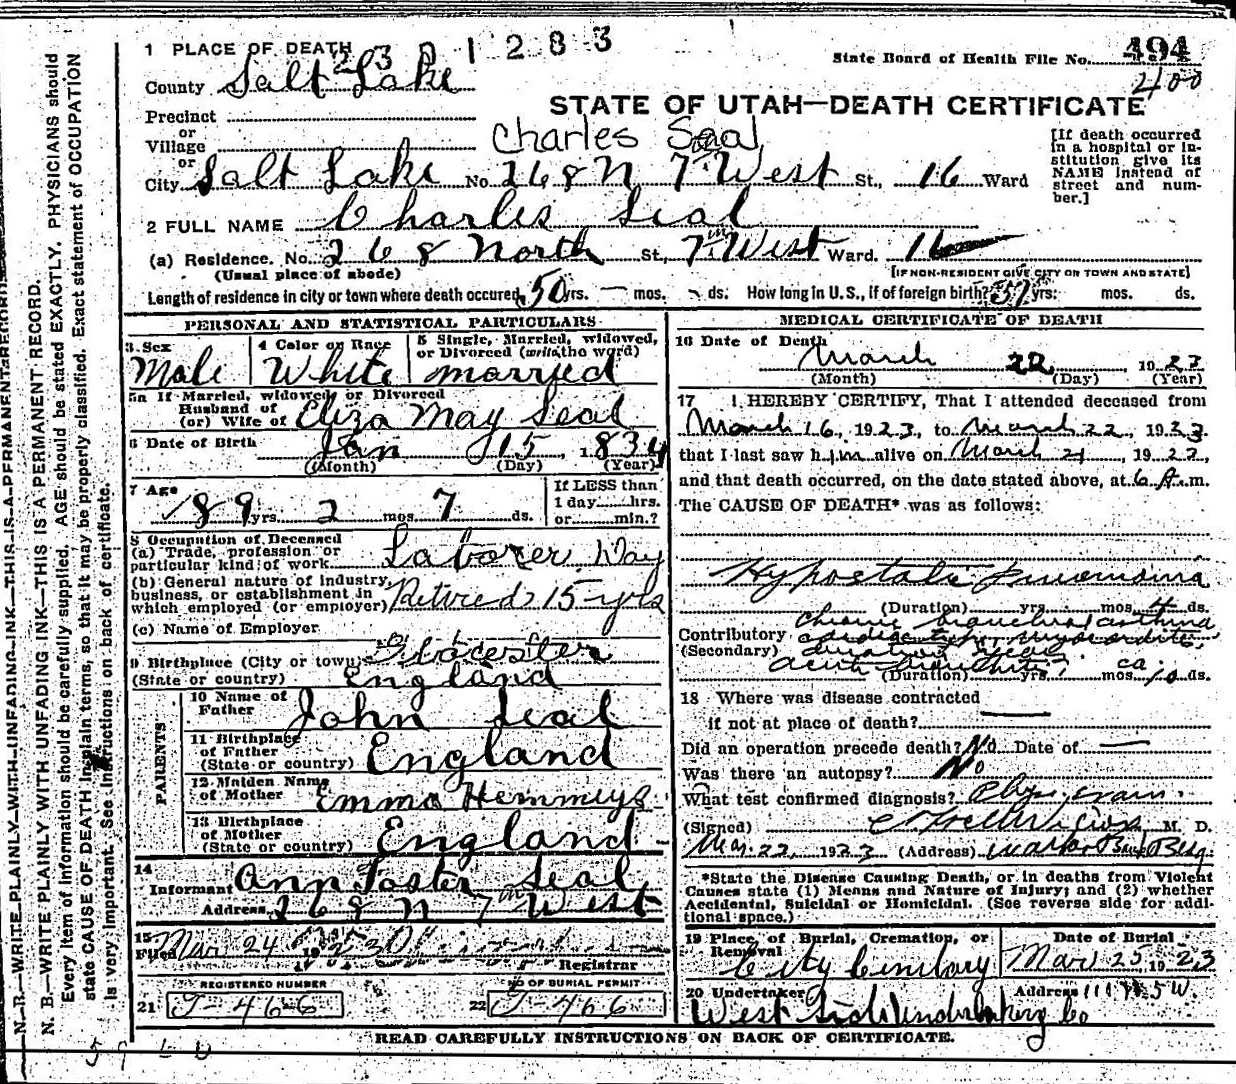 1 PLACE OF DEATH
23 01283
State Board of Health File No. 494
400
County Salt Lake
STATE OF UTAH—DEATH CERTIFICATE
Precinct
or
Village
Charles Seal
or
City Salt Lake No. 268 N 7th West St., 16 Ward
[If death occurred in a hospital or institution give its NAME instead of street and number.]
2 FULL NAME Charles Seal
(a) Residence. No. 268 North St., 7th West Ward. 16
(Usual place of abode)
[IF NON-RESIDENT GIVE CITY OR TOWN AND STATE]
Length of residence in city or town where death occured, 50 yrs. — mos. - ds. How long in U.S., if of foreign birth? 57 yrs. mos. ds.
PERSONAL AND STATISTICAL PARTICULARS
3 Sex Male
4 Color or Race White
5 Single, Married, widowed, or Divorced (write the word) married
5a If Married, widowed or Divorced
Husband of
(or) Wife of Eliza May Seal
6 Date of Birth Jan 15, 1834
(Month) (Day) (Year)
7 Age 89 yrs. 2 mos. 7 ds.
If LESS than
1 day hrs.
or min.?
8 Occupation of Deceased
(a) Trade, profession or particular kind of work Laborer, Day
(b) General nature of industry, business, or establishment in which employed (or employer) Retired 15 yrs
(c) Name of Employer
9 Birthplace (City or town) Glocester
(State or country) England
PARENTS
10 Name of Father John Seal
11 Birthplace of Father (State or country) England
12 Maiden Name of Mother Emma
13 Birthplace of Mother (State or country) England
14
Informant Ann Foster Seal
Address 268 N 7th West
15
Filed Mar 24
Registrar
REGISTERED NUMBER
21 J-466
NO OF BURIAL PERMIT
22 J-466
MEDICAL CERTIFICATE OF DEATH
16 Date of Death
March 22, 1923
(Month) (Day) (Year)
17 I HEREBY CERTIFY, That I attended deceased from
March 16, 1923, to March 22, 1923.
that I last saw him alive on March 21, 1922,
and that death occurred, on the date stated above, at 6 A.m.
The CAUSE OF DEATH* was as follows:
Hypostatic Pneumonia
(Duration) yrs. mos. 4 ds.
chronic bronchial asthma
Contributory
(Secondary)
acute bronchitis ca.
(Duration) yrs. mos. 10 ds.
18 Where was disease contracted
if not at place of death?
Did an operation precede death? No Date of —
Was there an autopsy? No
What test confirmed diagnosis? Phys. exam.
(Signed) M. D.
Mar. 22, 1923 (Address) Walker Bank Bldg.
*State the Disease Causing Death, or in deaths from Violent Causes state (1) Menns and Nature of Injury; and (2) whether Accidental, Suicidal or Homicidal. (See reverse side for additional space.)
19 Place of Burial, Cremation, or Removal
City Cemetary
Date of Burial
Mar 25, 1923
20 Undertaker
West Side Undertaking Co
Address
READ CAREFULLY INSTRUCTIONS ON BACK OF CERTIFICATE.
N. B.—WRITE PLAINLY WITH UNFADING INK—THIS IS A PERMANENT RECORD.
N. B.—WRITE PLAINLY WITH UNFADING INK—THIS IS A PERMANENT RECORD.
Every item of information should be carefully supplied. AGE should be stated EXACTLY. PHYSICIANS should
state CAUSE OF DEATH in plain terms, so that it may be properly classified. Exact statement of OCCUPATION
is very important. See instructions on back of certificate.